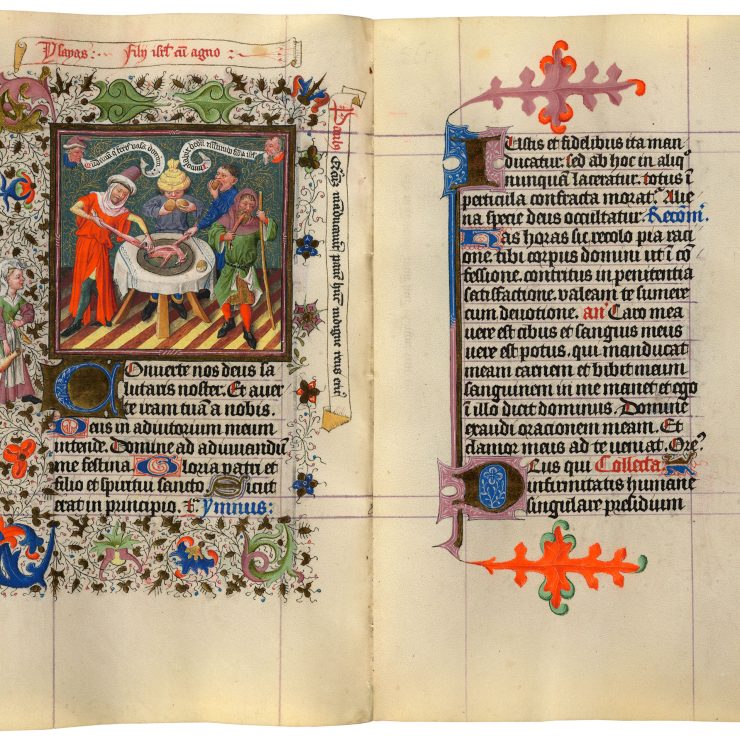 Ysayas : filij isrl cū agno :
fertis vasa domini
Onuerte nos deus sa
lutaris noster. Et auer
te iram tuā a nobis.
Deus in adiutorium meum
intende. Domine ad adiuuandū
me festina. Gloria patri et
filio et spiritui sancto. Sicut
erat in principio. Ymnus:
Iustus et fidelibus ita man
ducatur. sed ab hoc in aliqͦ
nunquam laceratur. totus ī
perticula confracta moratͬ. Alie
na specie deus occultatur. Recōm̄.
Has horas sic recolo pia raci
one. tibi corpus domini ut ī cō
fessione. contritus in penitentia
satisfactione. valeam te sumere
cum deuotione. añ Caro mea
uere est cibus et sanguis meus
uere est potus. qui manducat
meam carnem et bibit meum
sanguinem in me manet et ego
ī illo dicit dominus. Domine
exaudi orationem meam. Et
clamor meus ad te ueniat. Oreͫ
Deus qui Collecta
infirmitatis humane
singulare presidium